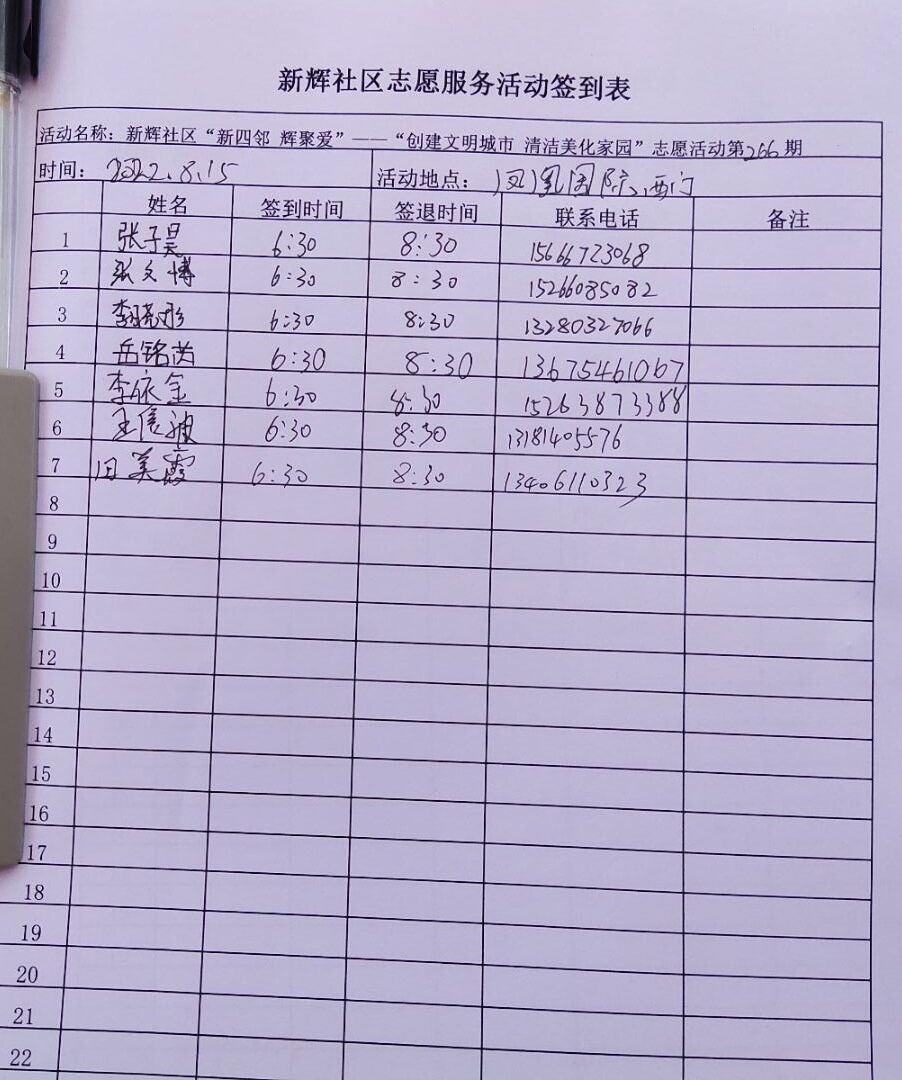 新辉社区志愿服务活动签到表
活动名称：新辉社区“新四邻 辉聚爱”——“创建文明城市 清洁美化家园”志愿活动第266期
时间：2022.8.15 活动地点：凤凰国际、西门
姓名 签到时间 签退时间 联系电话 备注
1 张子昊 6:30 8:30 15666723068
2 张文博 6:30 8:30 15266085082
3 李晓彤 6:30 8:30 13280327066
4 岳铭芮 6:30 8:30 13675461067
5 李依金 6:30 8:30 15263873388
6 王信迪 6:30 8:30 13181405576
7 田美霞 6:30 8:30 13406110323
8
9
10
11
12
13
14
15
16
17
18
19
20
21
22